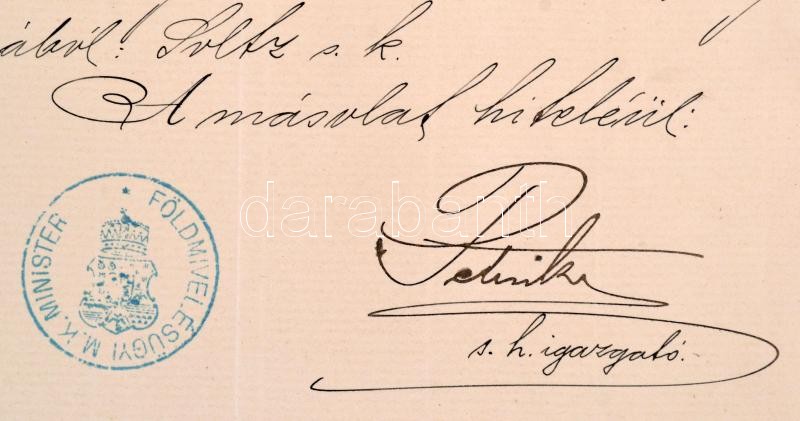 ából: Soltz s. k.
A másolat hiteléül:
FÖLDMIVELÉSÜGYI M. K. MINISTER
darabanth
s. h. igazgató.